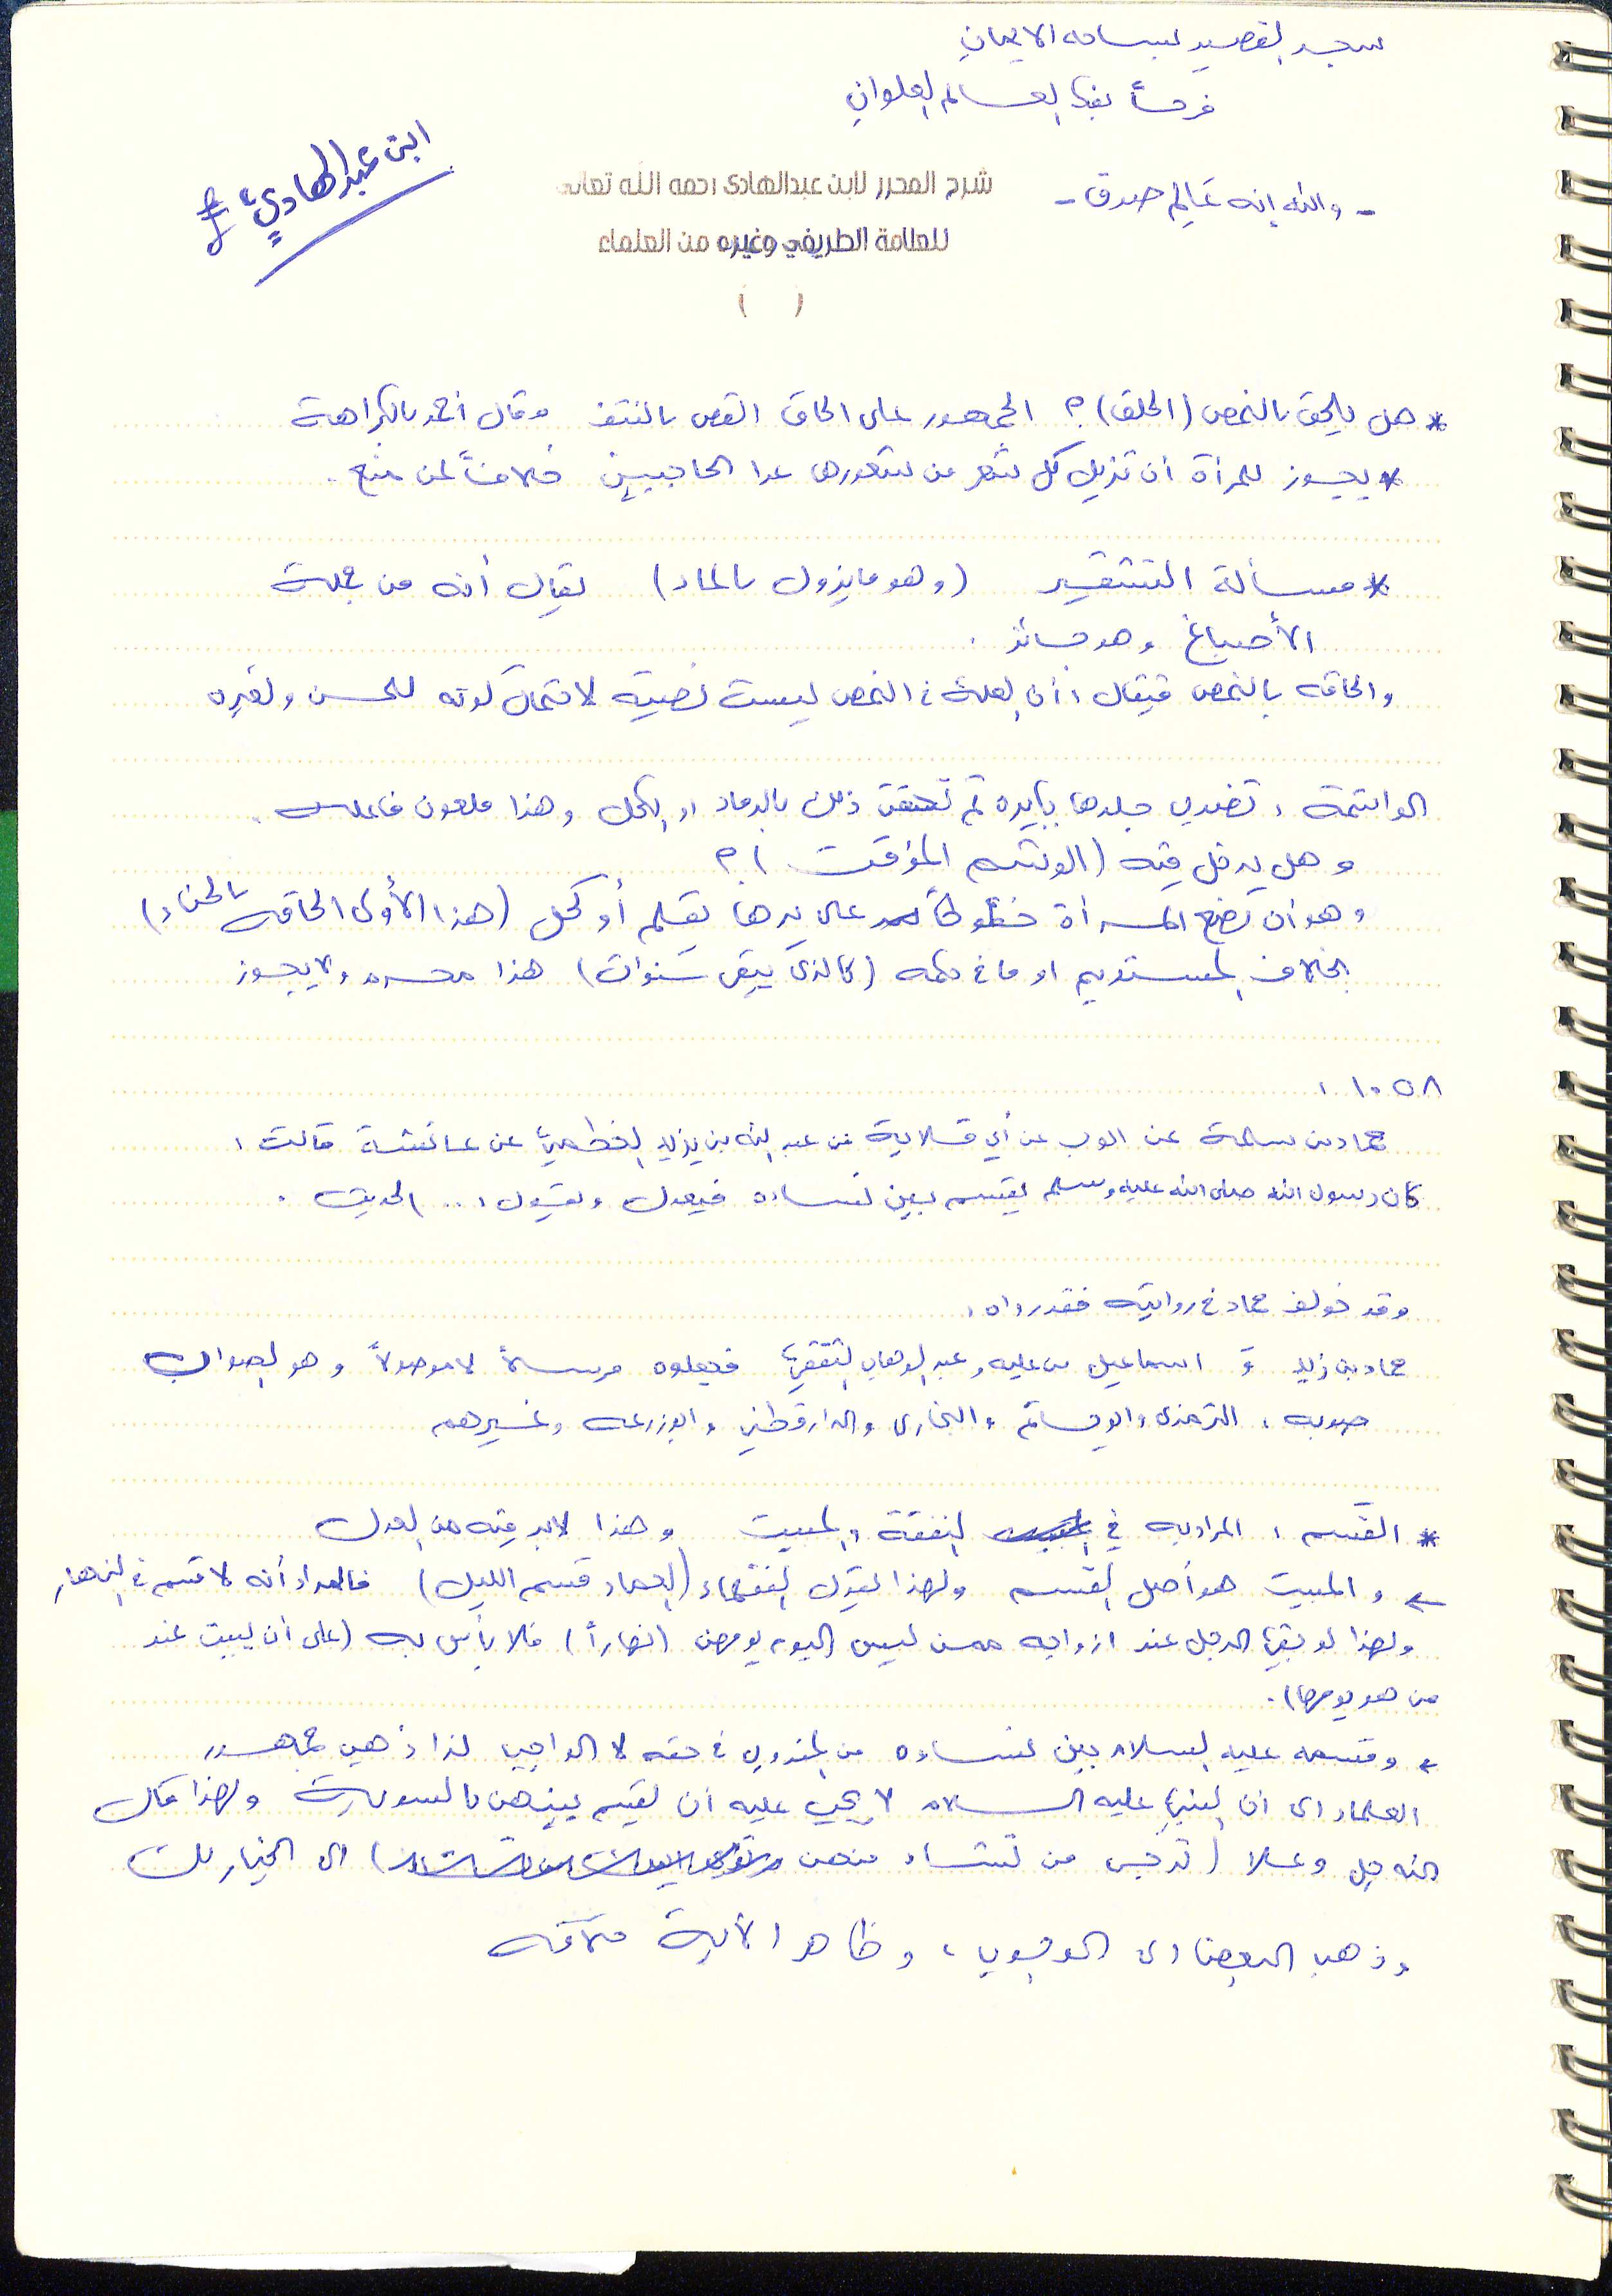 سجد القصيد لساحة الايمان
فرحاً بفك العالم العلوان
- والله إنه عَالِم صدوق -
ابن عبدالهادي
شرح المحرر لابن عبدالهادي رحمه الله تعالى
للعلامة الطريفي وغيره من العلماء
( )
* هل يلحق بالنمص (الحلق)؟ الجمهور على الحاق القص بالنتف وقال أحمد بالكراهة
* يجوز للمرأة أن تزيل كل شعر من شعورها عدا الحاجبين خلافاً لمن منع.
* مسألة التشقير (وهو ما يزول بالماء) يقال أنه من جملة
الأصباغ وهو جائز.
والحاقه بالنمص فيقال: أن العلة في النمص ليست نصية لاحتمال كونه للحسن ولغيره
الواشمة: تضرب جلدها بإبرة ثم تحقن ذلك بالرماد او الكحل وهذا ملعون فاعله.
وهل يدخل فيه (الوشم المؤقت)؟
وهو أن تضع المرأة خطوطاً على يدها بقلم أو كحل (هذا الأولى الحاقه بالحناء)
بخلاف المستديم او ما في حكمه (كالذي يبقى سنوات) هذا محرم ولا يجوز
١٠٥٨:
حماد بن سلمة عن ايوب عن أبي قلابة عن عبد الله بن يزيد الخطمي عن عائشة قالت:
كان رسول الله صلى الله عليه وسلم يقسم بين نساءه فيعدل ويقول: .. الحديث.
وقد خولف حماد في روايته فقد رواه:
حماد بن زيد و اسماعيل بن عليه وعبد الوهاب الثقفي فجعلوه مرسلاً لا موصولاً وهو الصواب
صوبه: الترمذي وابو حاتم والبخاري والدارقطني وابو زرعه وغيرهم
* القَسم: المراد به في النفقة والمبيت وهذا لابد فيه من العدل
← والمبيت هو أصل القسم ولهذا يقول الفقهاء (العماد قسم الليل) فالمراد أنه لا قسم في النهار
ولهذا لو بقي الرجل عند ازواجه ممن ليس اليوم يومهن (نهاراً) فلا بأس به (على أن يبيت عند
من هو يومها).
← وقسمه عليه السلام بين نساءه من المندوب في حقه لا الواجب لذا ذهب جمهور
العلماء الى ان النبي عليه السلام لا يجب عليه أن يقسم بينهن بالسوية ولهذا قال
الله جل وعلا (ترجي من تشاء منهن) الى الخيار لك
وذهب البعض الى الوجوب، وظاهر الأية خلافه